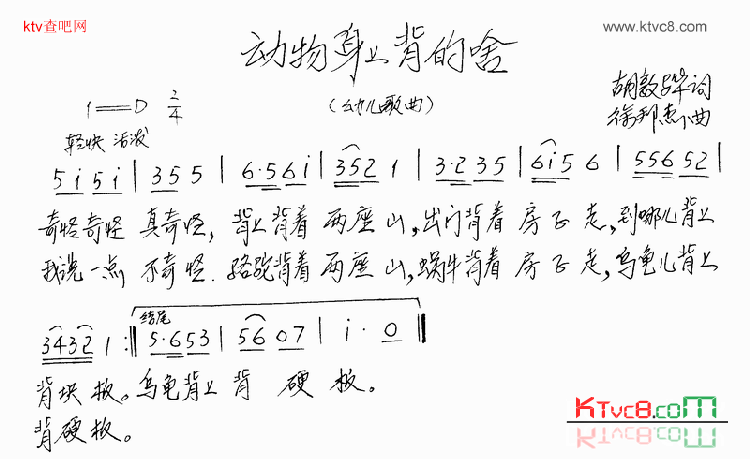 ktv查吧网
www.ktvc8.com
动物身上背的啥
(幼儿歌曲)
1=D 2/4
胡敦骅词
徐邦杰曲
轻快 活泼
5i5i | 355 | 6·56i | 3521 | 3·235 | 6i56 | 55652 |
奇怪奇怪 真奇怪, 背上背着 两座山,出门背着 房子走,到哪儿背上
我说一点 不奇怪.骆驼背着 两座山,蜗牛背着 房子走,乌龟儿背上
结尾
3432 1 :‖ 5·653 | 5607 | i·0 ‖
背块板。乌龟背上 背 硬 板。
背硬板。
KTvc8.com